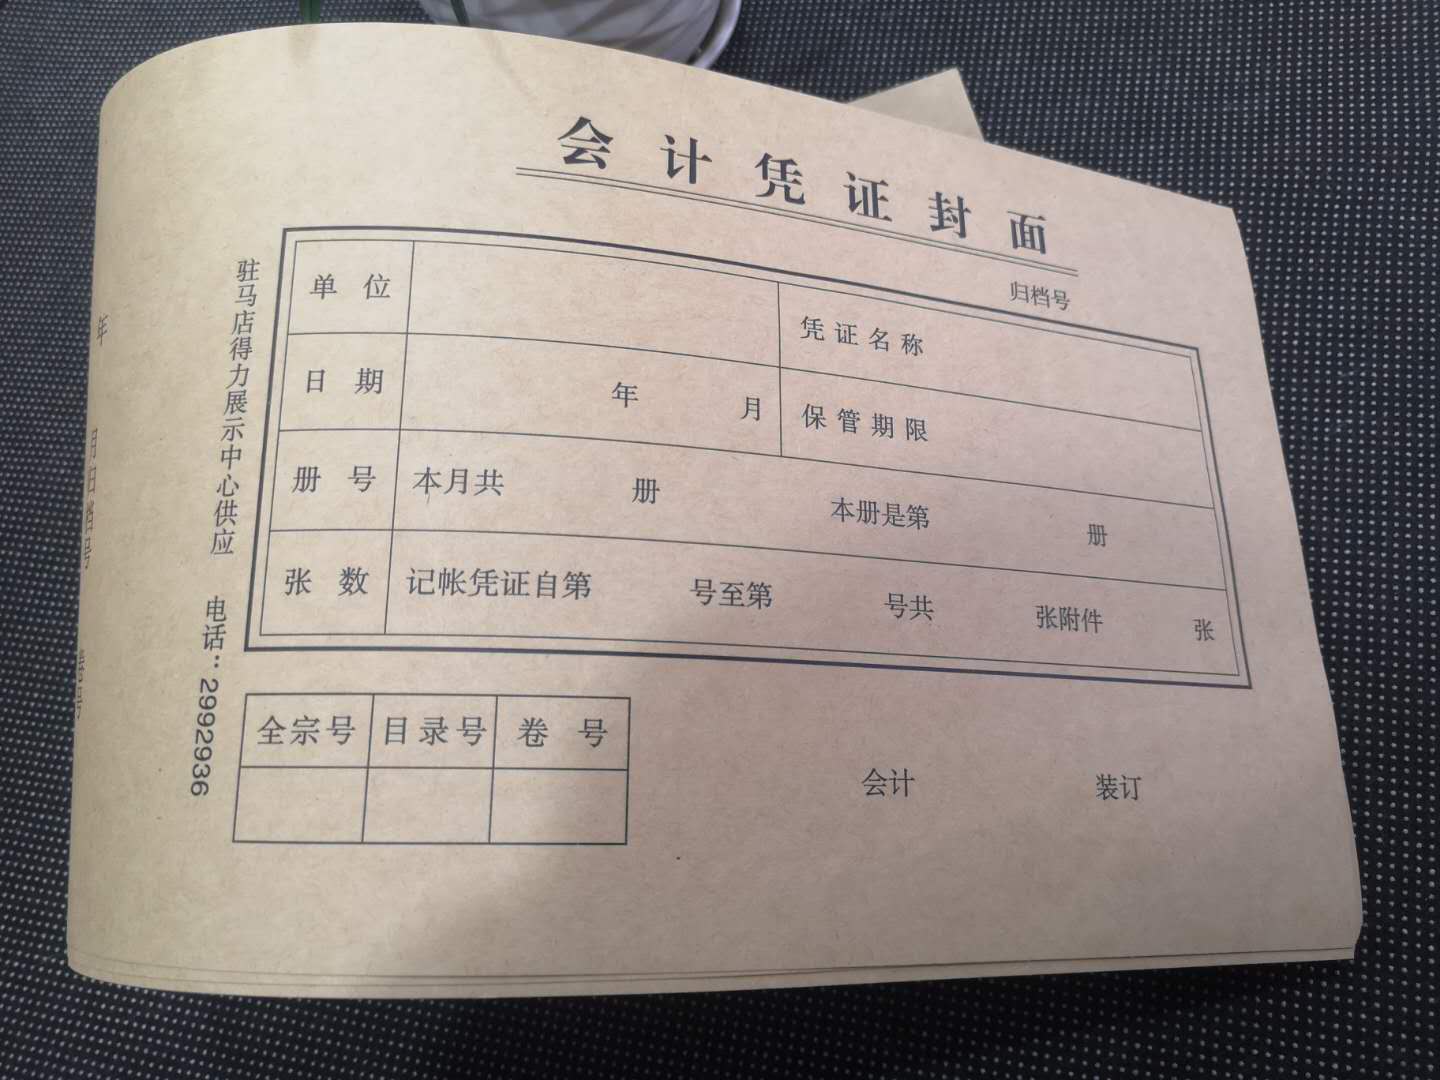 会计凭证封面
归档号
单位 凭证名称
日期 年 月 保管期限
册号 本月共 册 本册是第 册
张数 记帐凭证自第 号至第 号共 张附件 张
全宗号 目录号 卷号
会计 装订
驻马店得力展示中心供应 电话：2992936
年 月归档号 卷号